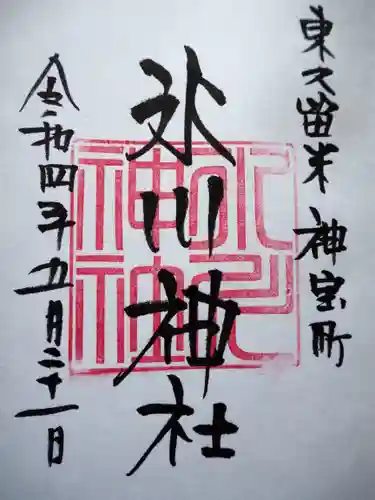 東久留米 神宝町
氷川神社
令和四年五月二十一日
氷川神社